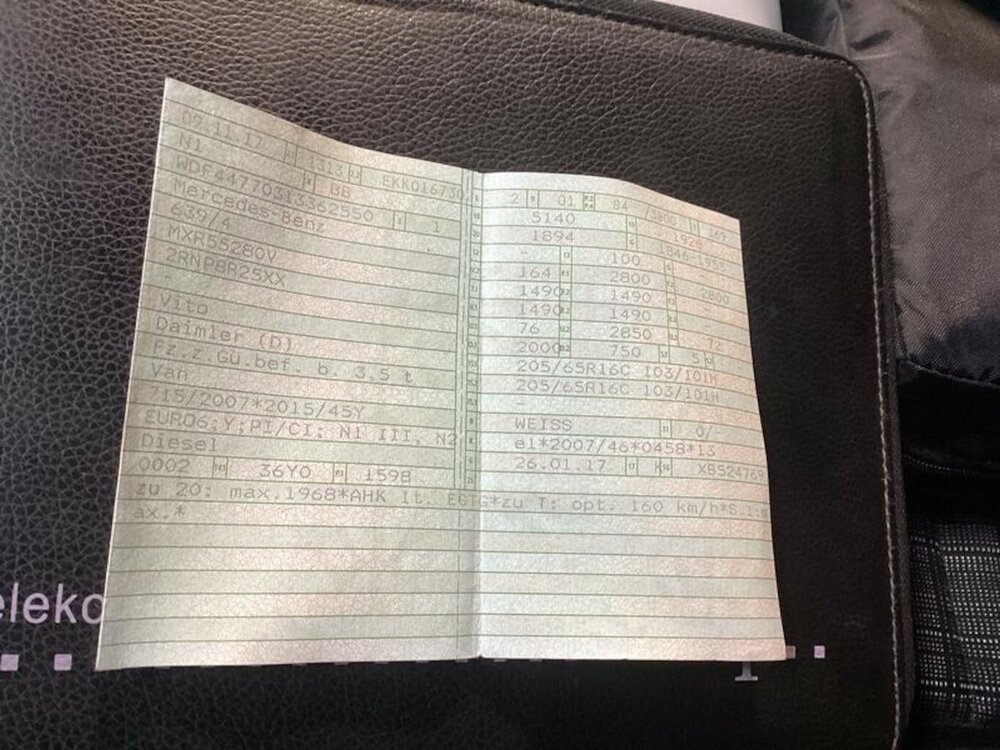 09.11.17 1313 EKK016730
N1 BB
WDF44770313362550 1
Mercedes-Benz
639/4
MXR55280V
2RNP8R2SXX
-
Vito
Daimler (D)
Fz.z.Gü.bef. b. 3,5 t
Van
715/2007*2015/45Y
EURO6;Y;PI/CI; N1 III, N2
Diesel
0002 36Y0 1598
2 01 84 /3800 169
5140 1928
1894 1846-1955
- 100 -
164 2800 2800
1490 1490 -
1490 1490 -
76 2850 72
2000 750 5
205/65R16C 103/101H
205/65R16C 103/101H
-
WEISS 0/
e1*2007/46*0458*13
26.01.17 K XB524769
zu 20: max.1968*AHK lt. EGTG*zu T: opt. 160 km/h*S.1:
ax.*
eleko